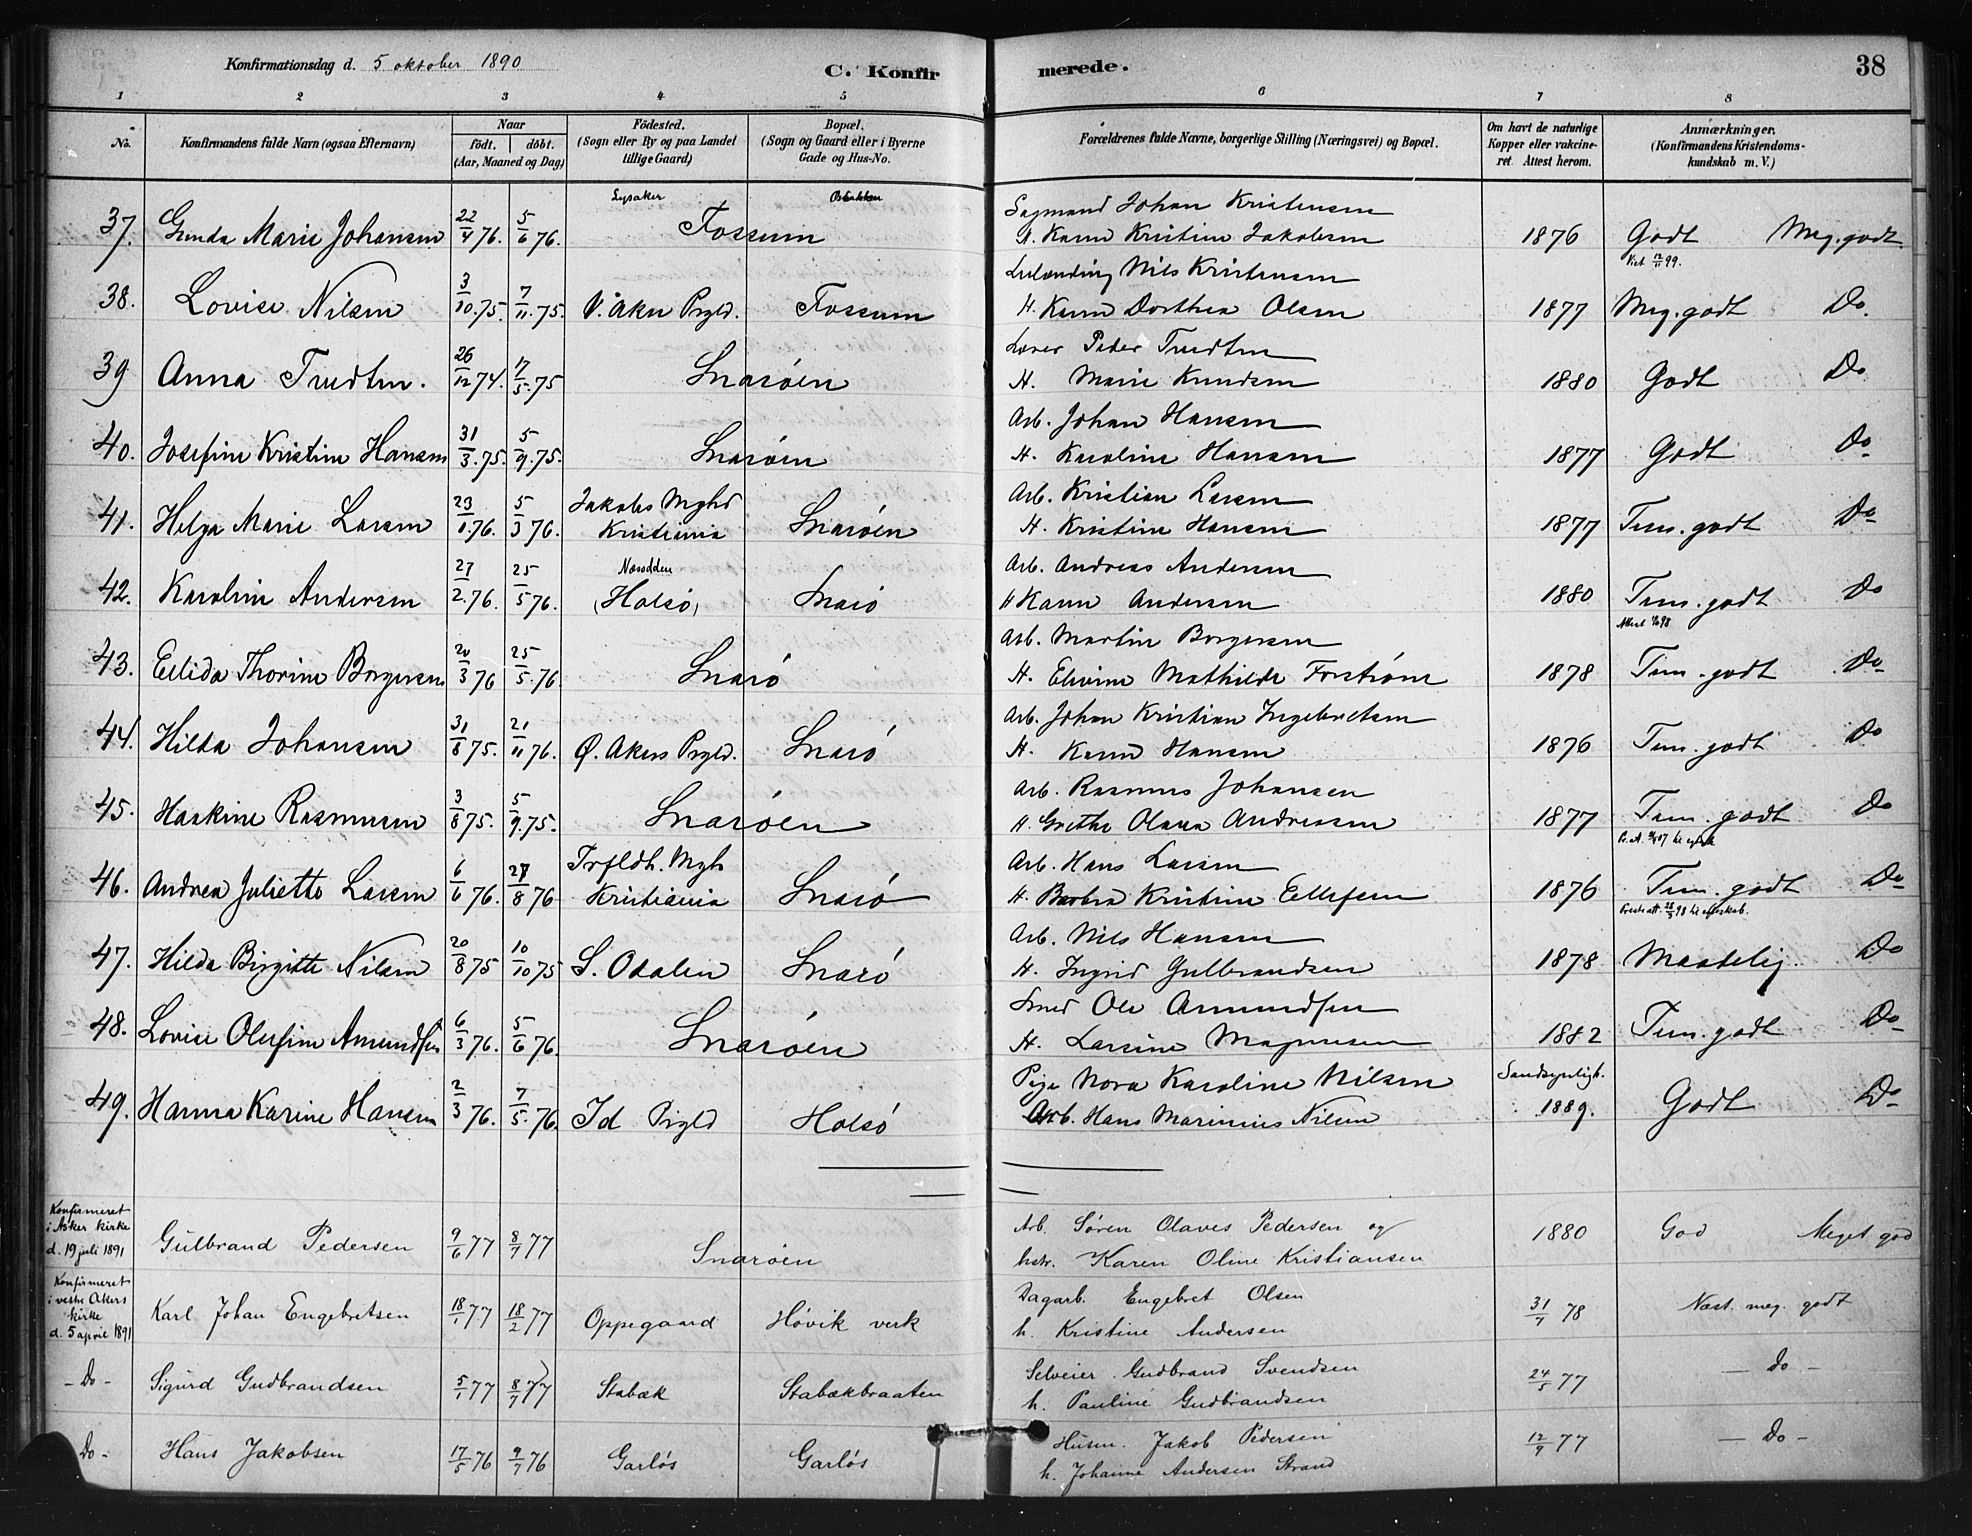 Konfirmationsdag d. 5 oktober 1890
C. Konfirmerede.
38
1 2 3 4 5 6 7 8
No.
Konfirmandens fulde Navn (ogsaa Efternavn)
Naar
födt. döbt.
(Aar, Maaned og Dag)
Födested.
(Sogn eller By og paa Landet
tillige Gaard)
Bopæl.
(Sogn og Gaard eller i Byerne
Gade og Hus-No.
Forældrenes fulde Navne, borgerlige Stilling (Næringsvei) og Bopæl.
Om havt de naturlige
Kopper eller vakcine-
ret. Attest herom.
Anmærkninger.
(Konfirmandens Kristendoms-
kundskab m. V.)
Lysaker
Sagmand Johan Kristensen
37. Gunda Marie Johansen 22/4 76. 5/6 76. Fossum H. Karen Kristine Jakobsen 1876 Godt Meg. godt
Nils Kristensen
38. Lovise Nilsen 3/10.75. 7/11.75. V. Aker Prgld. Fossum H. Karen Dorthea Olsen 1877 Meg. godt Do.
Peder Trudtin
39 Anna Trudtin. 26/12 74. 17/5.75 Snaröen H. Marie Knudsen 1880 Godt Do
Arb. Johan Hansen
40. Josefine Kristine Hansen 31/3.75. 5/9.75. Snaröen H. Karoline Hansen 1877 Godt Do
Jakobs Mghd Arb. Kristian Larsen
41. Helga Marie Larsen 23/1.76. 5/3 76. Kristiania Snaröen H. Kristine Hansen 1877 Tem. godt Do
Næsodden Arb. Andreas Andersen
42. Karoline Andersen 27/2.76. 25/5 76. (Holsö) Snarö H Karen Andersen 1880 Tem. godt Do
Arb. Martin Borgersen
43. Ellida Thorine Borgersen 20/3 76 25/5.76. Snarö H. Elvine Mathilde Forström 1878 Tem. godt Do
Arb. Johan Kristian Ingebretsen
44. Hilda Johansen 31/8 75. 21/11 76. Ø. Akers Prgld. Snarö H. Karen Hansen 1876 Tem. godt Do
Arb. Rasmus Johansen
45. Haakine Rasmusen 3/8 75. 5/9.75. Snaröen H. Grethe Olava Andreasen 1877 Tem. godt Do
Trfldh. Mgh Arb. Hans Larsen
46. Andrea Juliette Larsen 6/6 76. 27/8 76 Kristiania Snarö H. Barbra Kristine Ellefsen 1876 Tem. godt Do
Arb. Nils Hansen
47. Hilda Birgitte Nilsen 20/8 75 10/10 75 S. Odalen Snarö H. Ingrid Gulbrandsen 1878 Maadelig Do
Smed Ole Amundsen
48. Lovise Olufine Amundsen 6/3 76. 5/6 76. Snaröen H. Larsine Magnusen 1882 Tem. godt Do
Pige Nora Karoline Nilsen Sandsynligt.
49. Hanna Karine Hansen 2/3 76. 7/5.76. Id Prgld Holsö Arb. Hans Marinius Nilsen 1889. Godt Do
Konfirmeret
i Asker kirke
d. 19 juli 1891
Arb. Sören Olaves Pedersen og
Gulbrand Pedersen 9/6 77 8/7 77 Snaröen hstr. Karen Oline Kristiansen 1880 God Meget god
Konfirmeret
i vestre Akers
kirke
d. 5 april 1891
Dagarb. Engebret Olsen
Karl Johan Engebretsen 18/1 77 18/2 77 Oppegaard Hövik verk h. Kristine Andersen 31/7 78 Næst. meg. godt
Selveier Gudbrand Svendsen
- Do - Sigurd Gudbrandsen 5/1 77 8/7 77 Stabæk Stabækbraaten h. Pauline Gudbrandsen 24/5 77 - do -
Husm. Jakob Pedersen
Do - Hans Jakobsen 17/5 76 9/7 76 Garlös Garlös h. Johanne Andersen Strand 12/9 77 - Do -